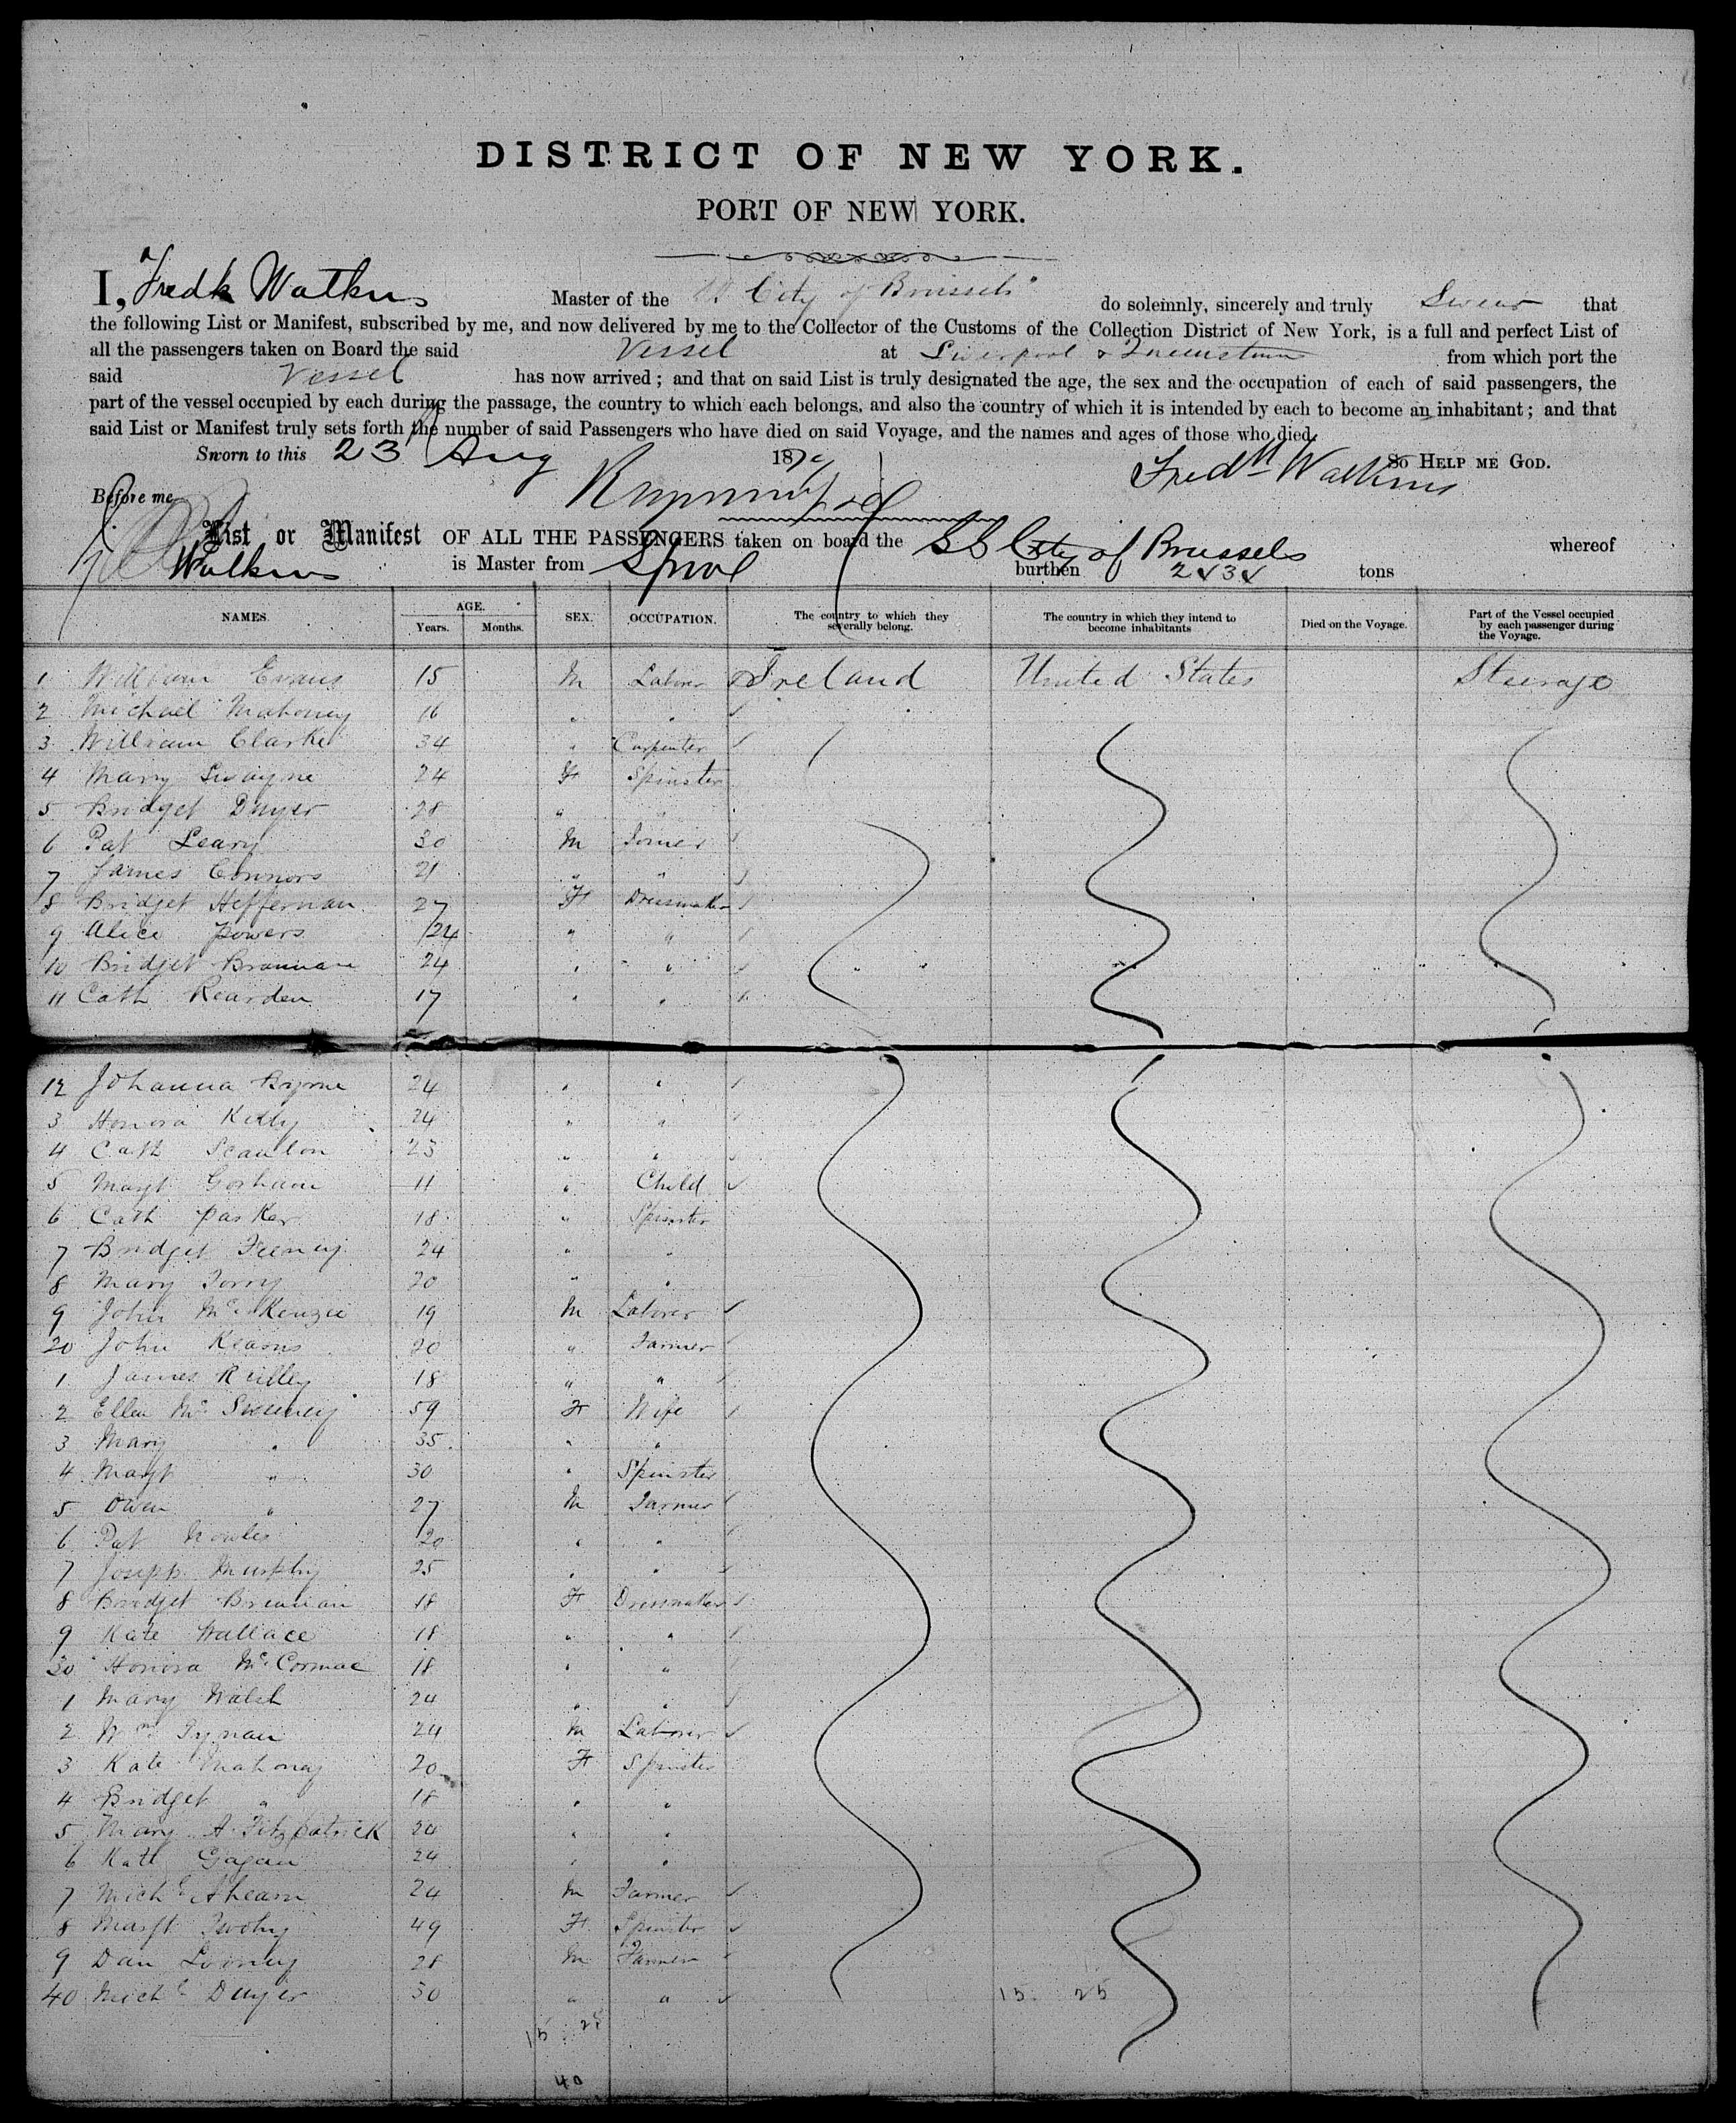 DISTRICT OF NEW YORK.
PORT OF NEW YORK.
I, Fredk Watkins Master of the "City of Brussels" do solemnly, sincerely and truly Swear that
the following List or Manifest, subscribed by me, and now delivered by me to the Collector of the Customs of the Collection District of New York, is a full and perfect List of
all the passengers taken on Board the said Vessel at Liverpool & Queenstown from which port the
said Vessel has now arrived; and that on said List is truly designated the age, the sex and the occupation of each of said passengers, the
part of the vessel occupied by each during the passage, the country to which each belongs, and also the country of which it is intended by each to become an inhabitant; and that
said List or Manifest truly sets forth the number of said Passengers who have died on said Voyage, and the names and ages of those who died.
Sworn to this 23 Aug 187 So Help me God.
Fredk Watkins
Before me
List or Manifest OF ALL THE PASSENGERS taken on board the SS City of Brussels whereof
Watkins is Master from Lpool burthen 2434 tons
NAMES. AGE. Years. Months. SEX. OCCUPATION. The country to which they severally belong. The country in which they intend to become inhabitants Died on the Voyage. Part of the Vessel occupied by each passenger during the Voyage.
1 William Evans 15 M Laborer Ireland United States Steerage
2 Michael Mahoney 16 " "
3 William Clarke 34 " Carpenter
4 Mary Swayne 24 F Spinster
5 Bridget Dwyer 28 " "
6 Pat Leary 30 M Joiner
7 James Connors 21 " "
8 Bridget Heffernan 27 F Dressmaker
9 Alice Powers 24 " "
10 Bridget Brannan 24 " "
11 Cath Rearden 17 " "
12 Johanna Byrne 24 " "
3 Honora Kelly 24 " "
4 Cath Scanlon 23 " "
5 Margt Gorham 11 " Child
6 Cath Parker 18 " Spinster
7 Bridget Feeney 24 " "
8 Mary Torry 20 " "
9 John McKenzie 19 M Laborer
20 John Kearns 20 " Farmer
1 James Reilley 18 " "
2 Ellen McSweeney 59 F Wife
3 Mary " 35 " "
4 Margt " 30 " Spinster
5 Owen " 27 M Farmer
6 Pat Nowles 20 " "
7 Joseph Murphy 25 " "
8 Bridget Brennan 18 F Dressmaker
9 Kate Wallace 18 " "
30 Honora McCormac 18 " "
1 Mary Walsh 24 " "
2 Wm Tynan 24 M Laborer
3 Kate Mahoney 20 F Spinster
4 Bridget " 18 " "
5 Mary A. Fitzpatrick 24 " "
6 Kate Gagan 24 " "
7 Michl Ahearn 24 M Farmer
8 Margt Twohy 49 F Spinster
9 Dan Looney 28 M Farmer
40 Michl Dwyer 30 " "
15 25
15 25
40